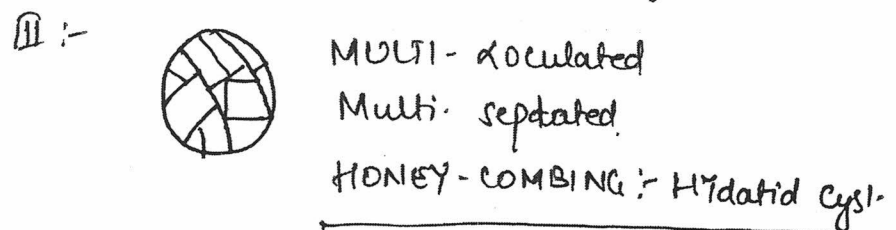 II :-
MULTI - Loculated
Multi. septated.
HONEY - COMBING :- Hydatid Cyst.